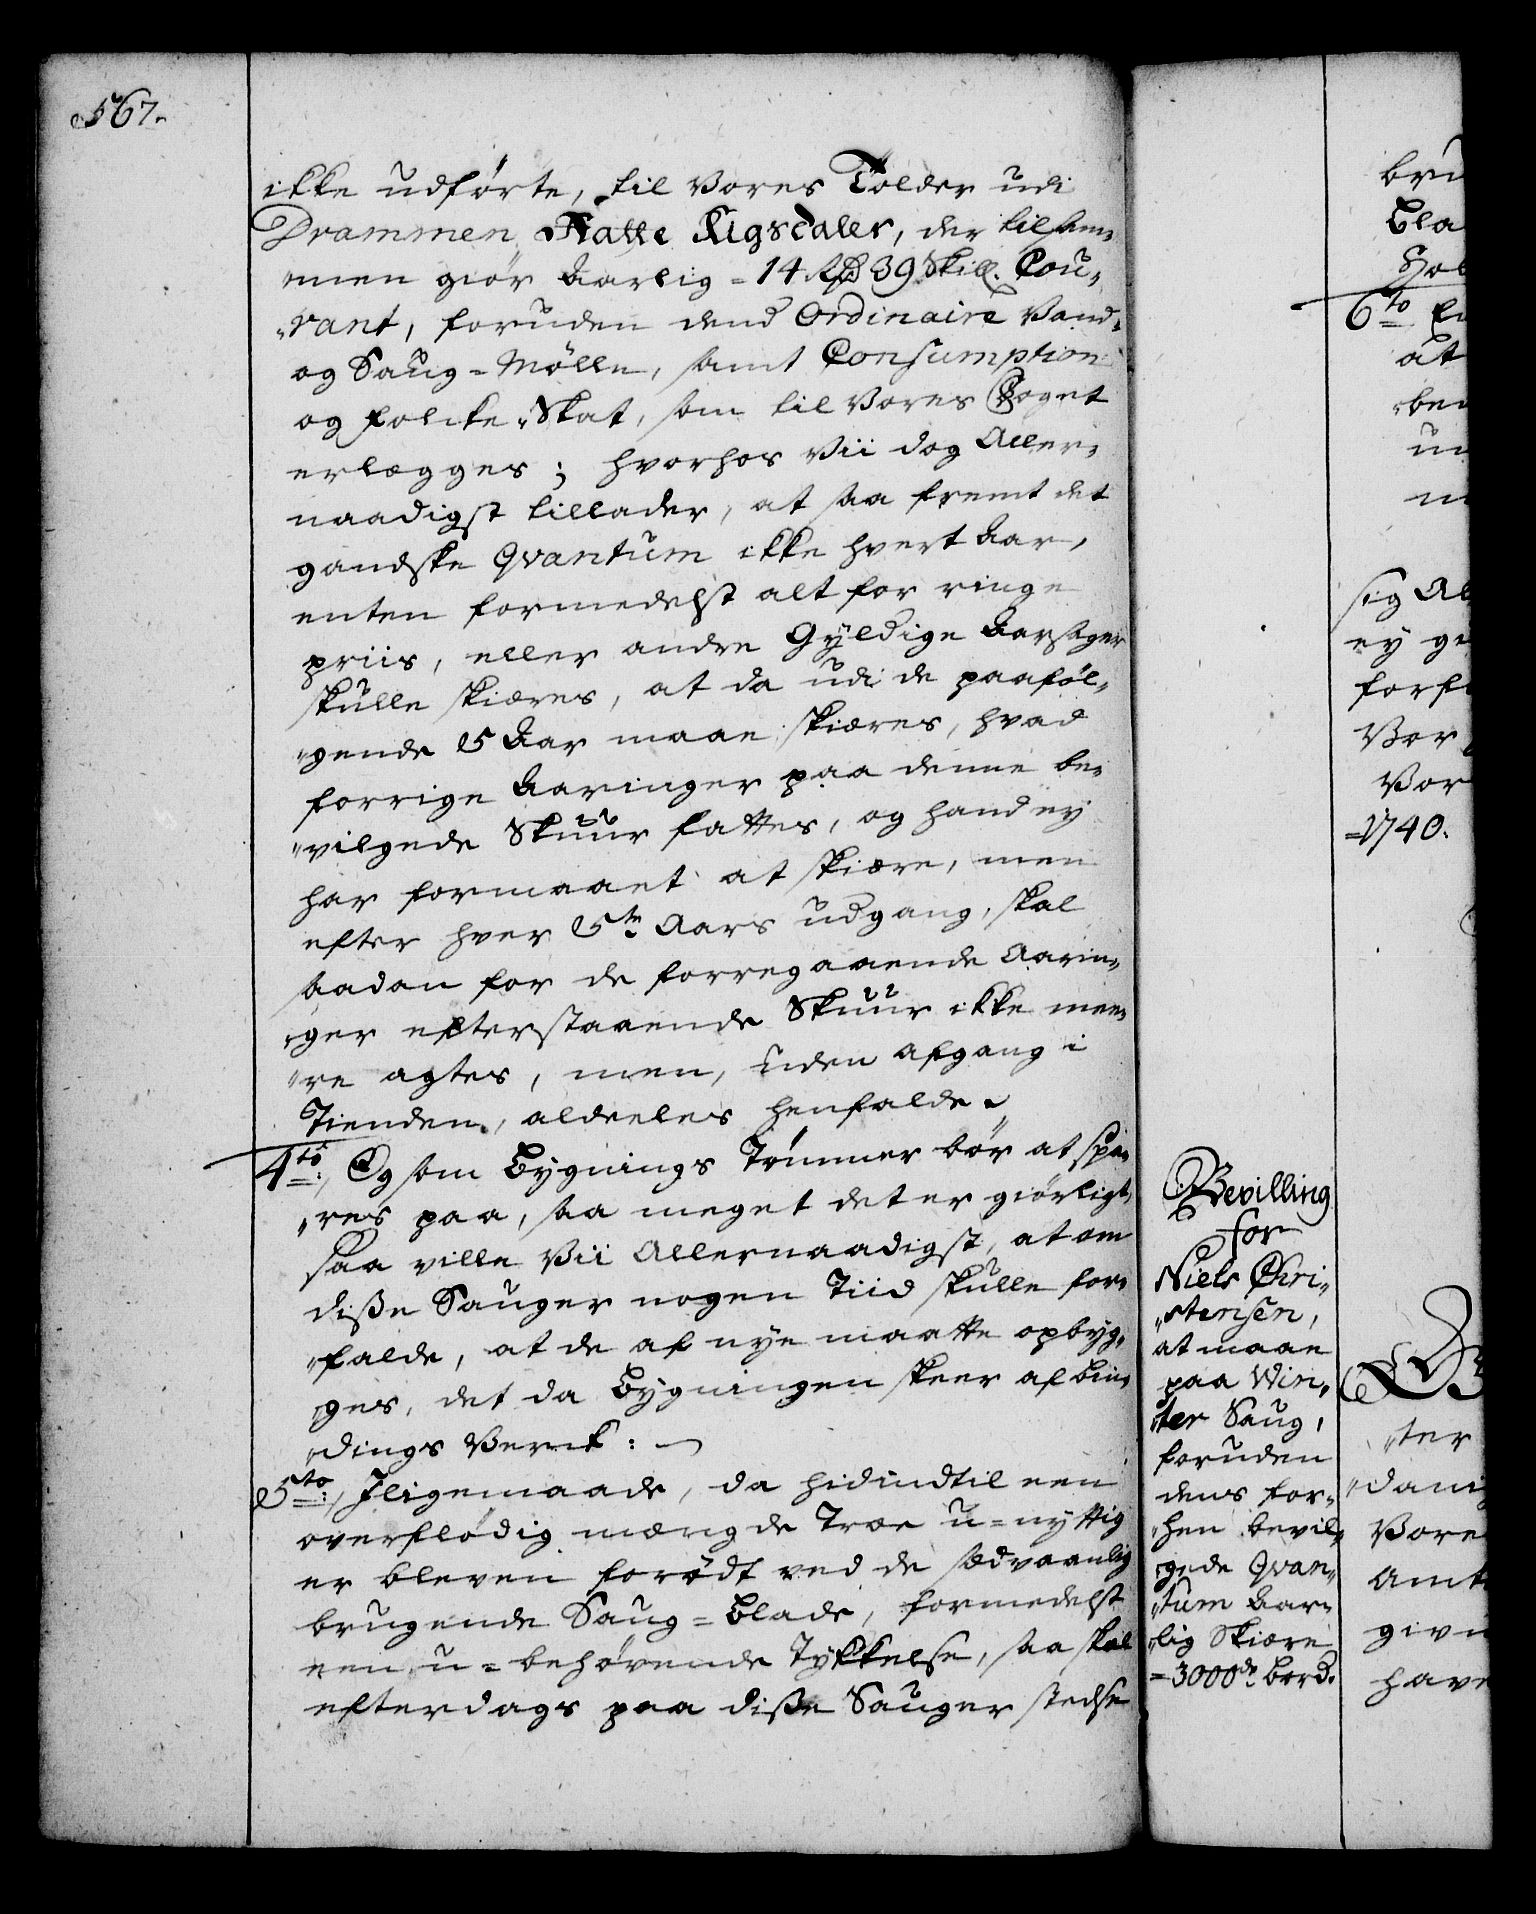 567.
ikke udførte, til Vores Tolder udi
Drammen Hatte Rigsdaler, der tilsam„
„men giør Aarlig = 14 Rd 39 Skill. Cou„
„rant, foruden dend Ordinaire Vand„
og Saug=Mølle, samt Consumption
og folcke„Skat, som til Vores Foget
erlægges; hvorhos Vii dog Aller„
naadigst tillader, at saa fremt det
gandske Qvantum ikke hvert Aar,
enten formedelst alt for ringe
priis, eller andre Gyldige Aarsager
skulle skiæres, at da udi de paaføl„
„gende 5 Aar maae skiæres, hvad
forrige Aaringer paa denne be„
„vilgede Skuur fattes, og hand ey
har formaaet at skiære, men
efter hver 5te Aars udgang, skal
saadan for de forregaaende Aarin„
„ger efterstaaende Skuur ikke mee„
„re agtes, men, uden afgang i
Tienden, aldeeles henfalde.
4to:, Og som Bygnings Tømmer bør at spa„
„res paa, saa meget det er giørligt,
saa ville Vii Allernaadigst, at om
diße Sauger nogen Tiid skulle for„
„falde, at de af nye maatte opbyg„
„ges, det da Bygningen skeer af bin„
„dings Verck:
5to:, Jligemaade, da hidindtil een
overflødig mængde Træe u=nyttig
er bleven forødt ved de sædvaanlig
brugende Saug=Blade, formedelst
een u=behøvende Tykkelse, saa skal
efterdags paa diße Sauger stedse
Bevilling
for
Niels Chri„
„stensen,
at maae
paa Win„
„ter Saug,
foruden
dens for„
„hen bevil„
„gede Qvan„
„tum Aar„
„lig Skiære
=3000de bord.
bru
Bla
Hol
6to
at
ben
un
sig Al
ey ge
forf
Vor
Vor
=1740.
„ter
„dani
Vore
Amt
givn
have